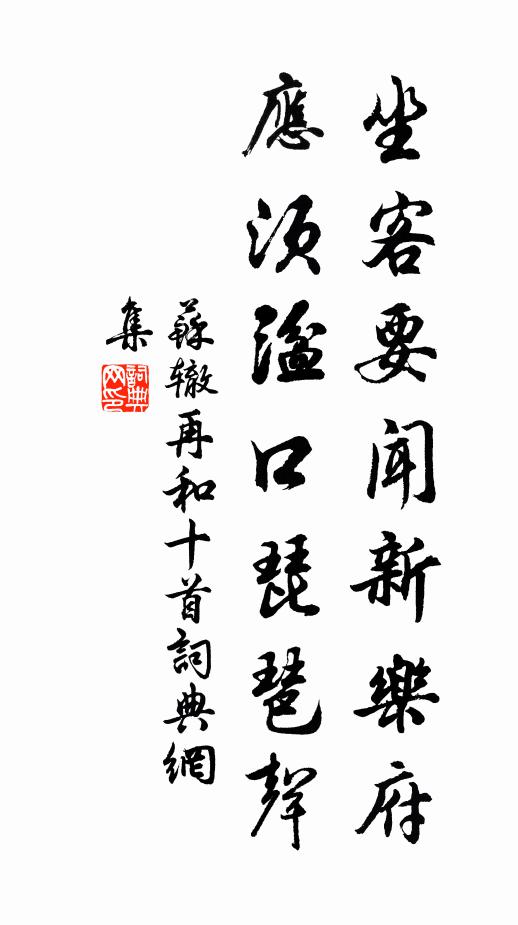 坐客要聞新樂府
應須湓口琵琶聲
蘇辙再和十首詞典網
集
詞典網印